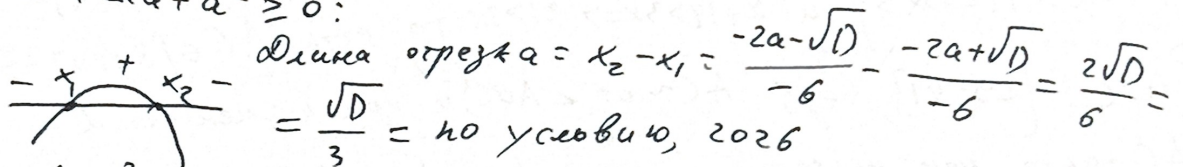 ≥ 0:
Длина отрезка = x₂ - x₁ = (-2a-√D)/(-6) - (-2a+√D)/(-6) = 2√D/6 =
- x₁ + x₂ -
= √D/3 = по условию, 2026